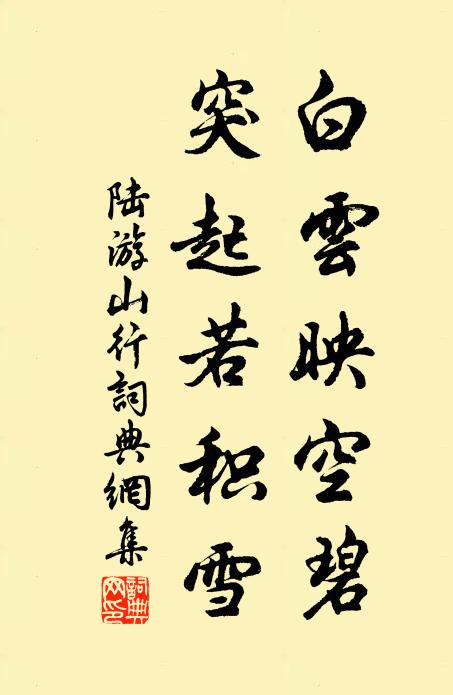 白雲映空碧
突起若积雪
陆游山行詞典網集
詞典网印